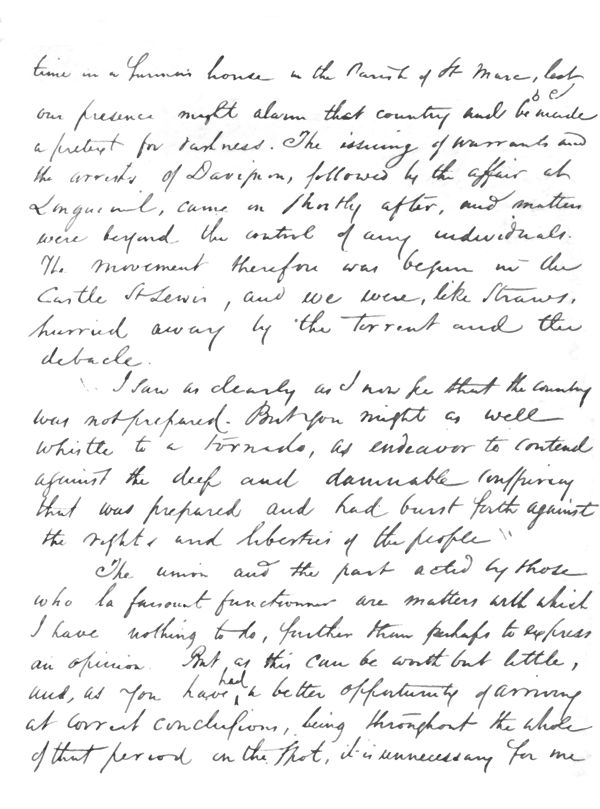 time in a farmers house in the Parish of St Marc, lest
our presence might alarm that country and be made
a pretext for rashness. The issuing of warrants and
the arrests of Davignon, followed by the affair at
Longueuil, came on shortly after, and matters
were beyond the control of any individuals.
The movement therefore was begun in the
Castle St Lewis, and we were, like Straws,
hurried away by the Torrent and the
debacle.
" I saw as clearly as I now see that the country
was not prepared. But you might as well
whistle to a tornado, as endeavor to contend
against the deep and damnable conspiring
that was prepared and had burst forth against
the rights and liberties of the people "
The union and the part acted by those
who la faisaient functionner are matters with which
I have nothing to do, further than perhaps to express
an opinion. But, as this can be worth but little,
and, as you have had a better opportunity of arriving
at correct conclusions, being throughout the whole
of that period on the Spot, it is unnecessary for me